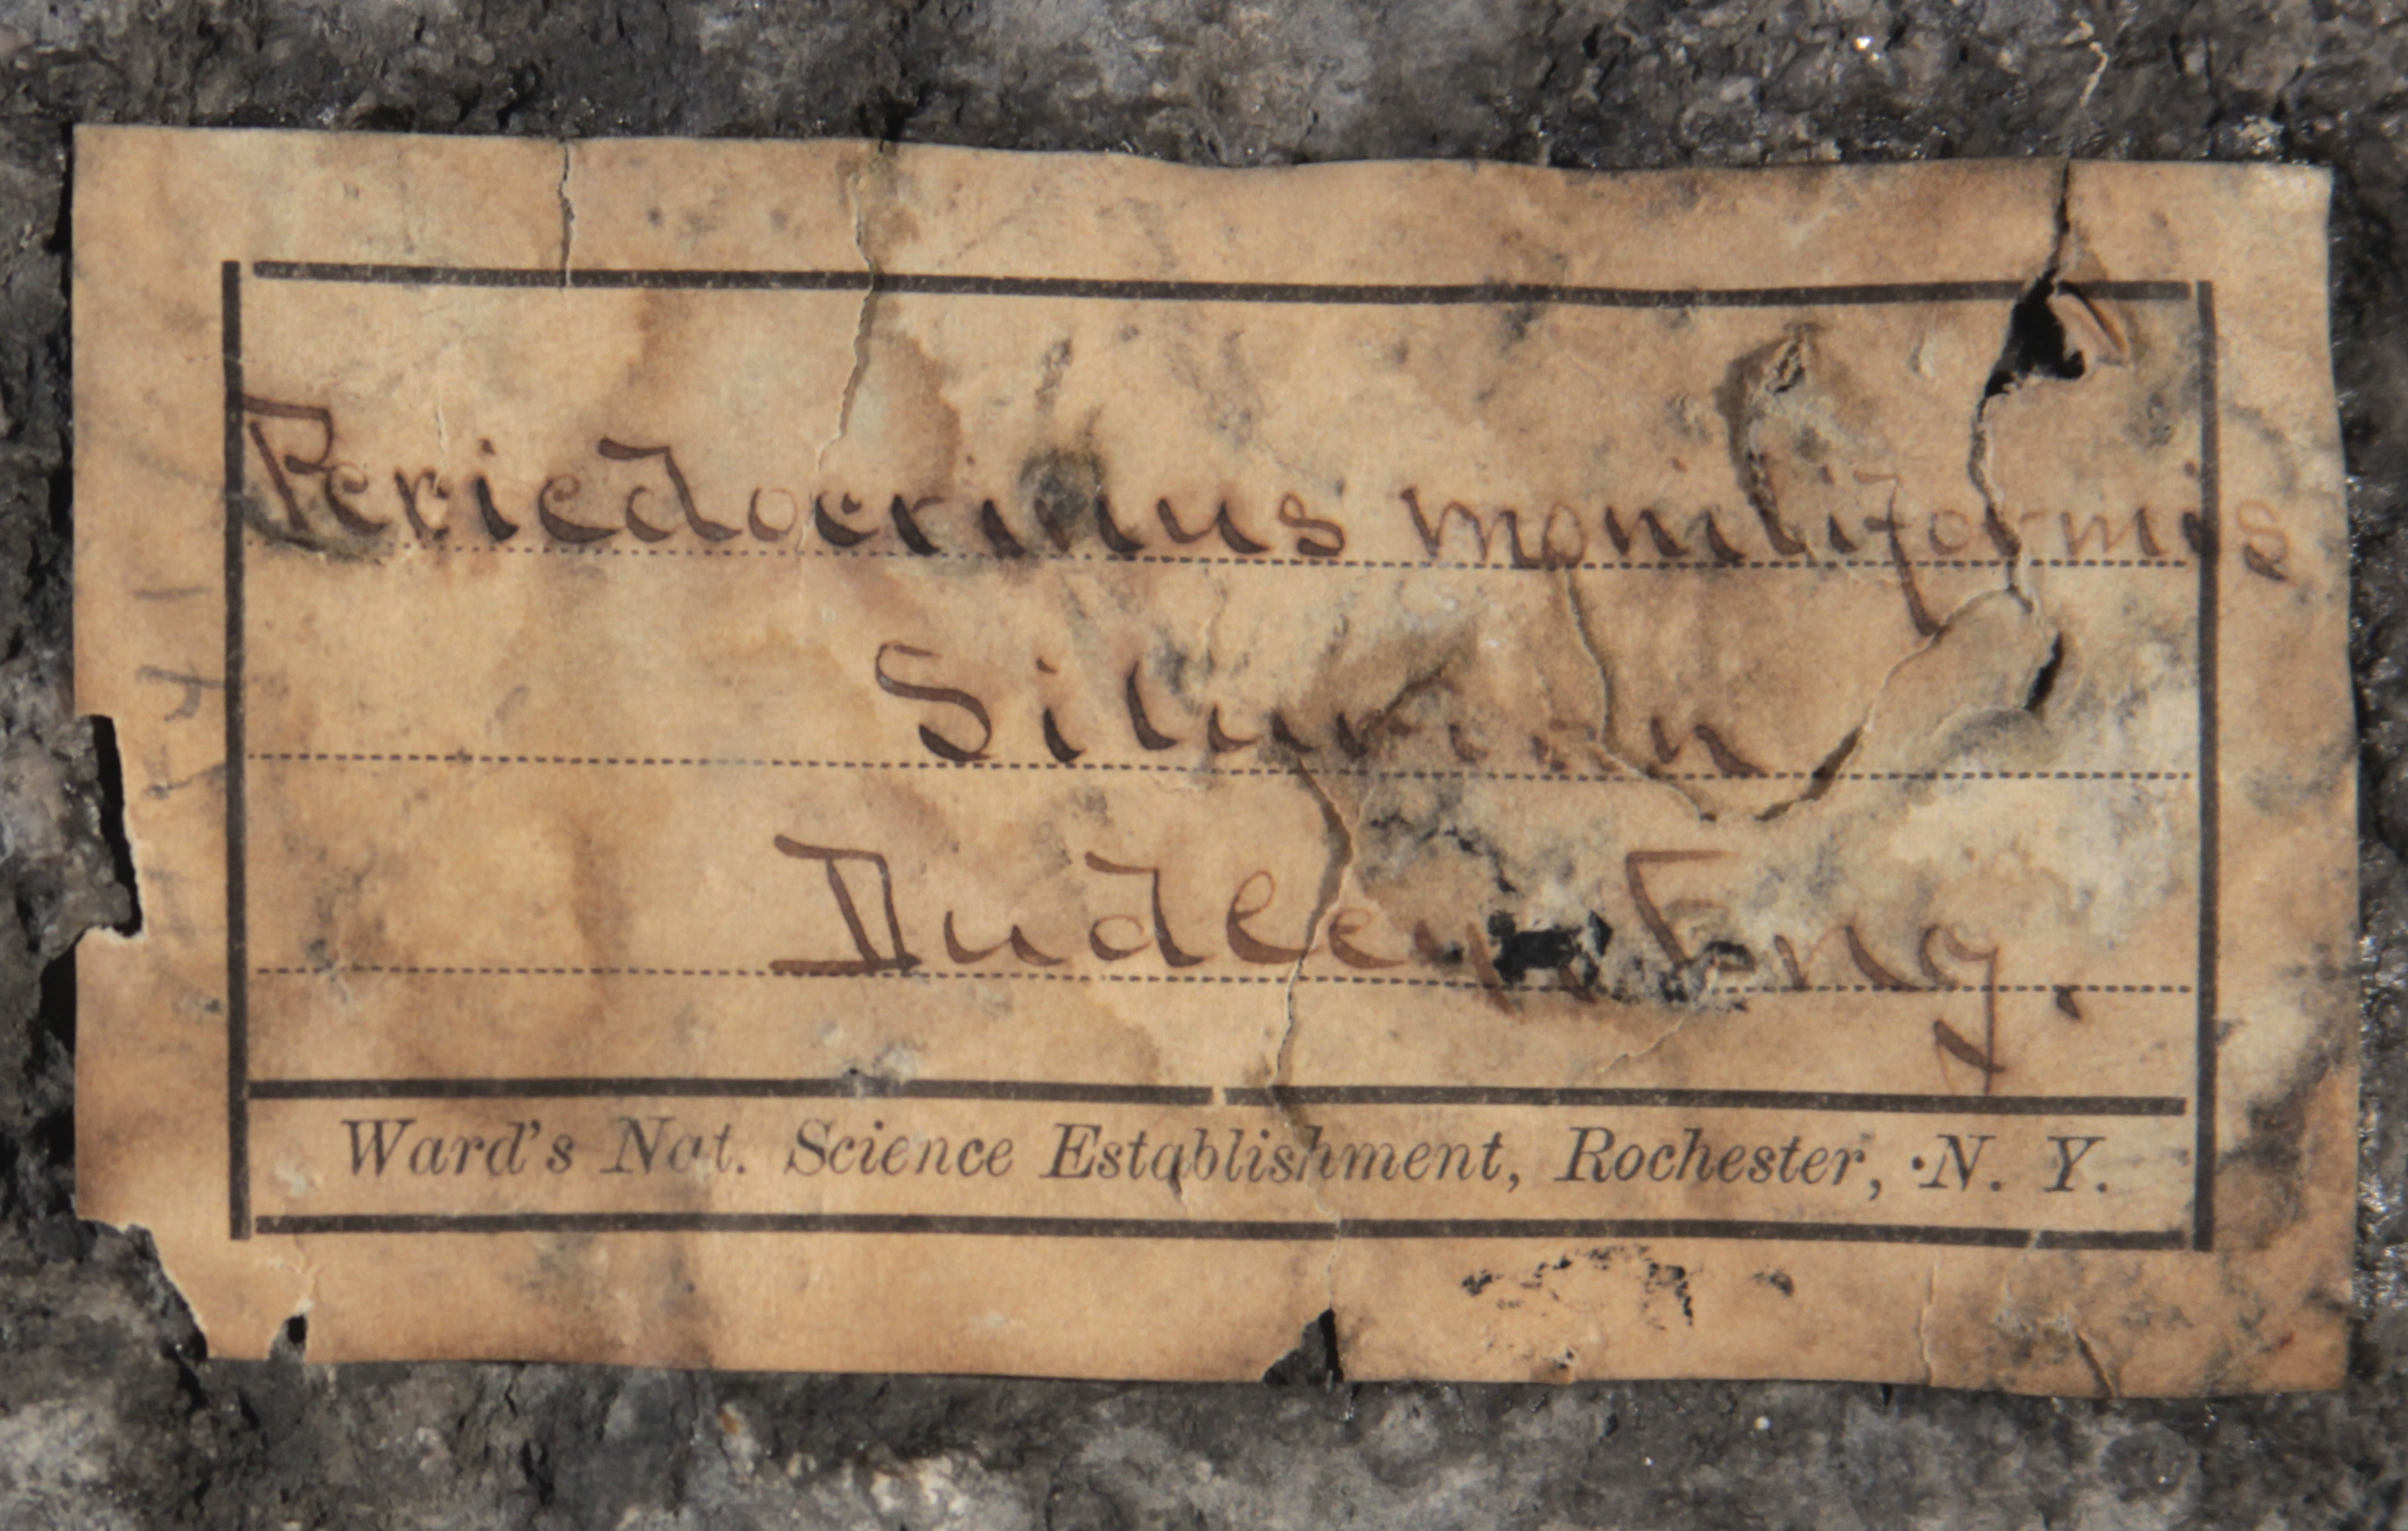 Periedocrinus moniliformis
Silurian
Dudley, Eng.
Ward's Nat. Science Establishment, Rochester, N. Y.